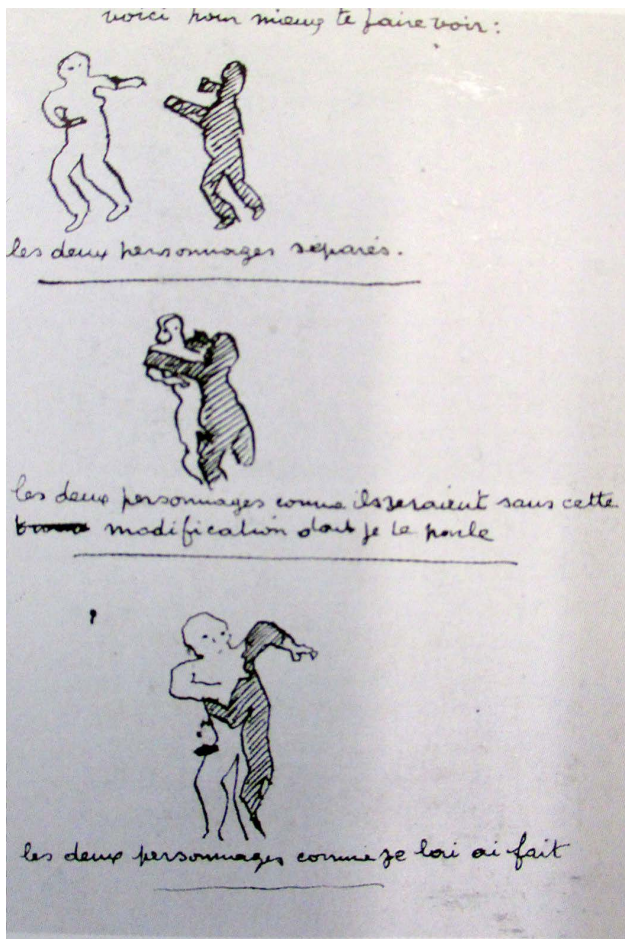 voici pour mieux te faire voir:
les deux personnages séparés.
les deux personnages comme ils seraient sans cette
modification dont je te parle
les deux personnages comme je l'ai fait